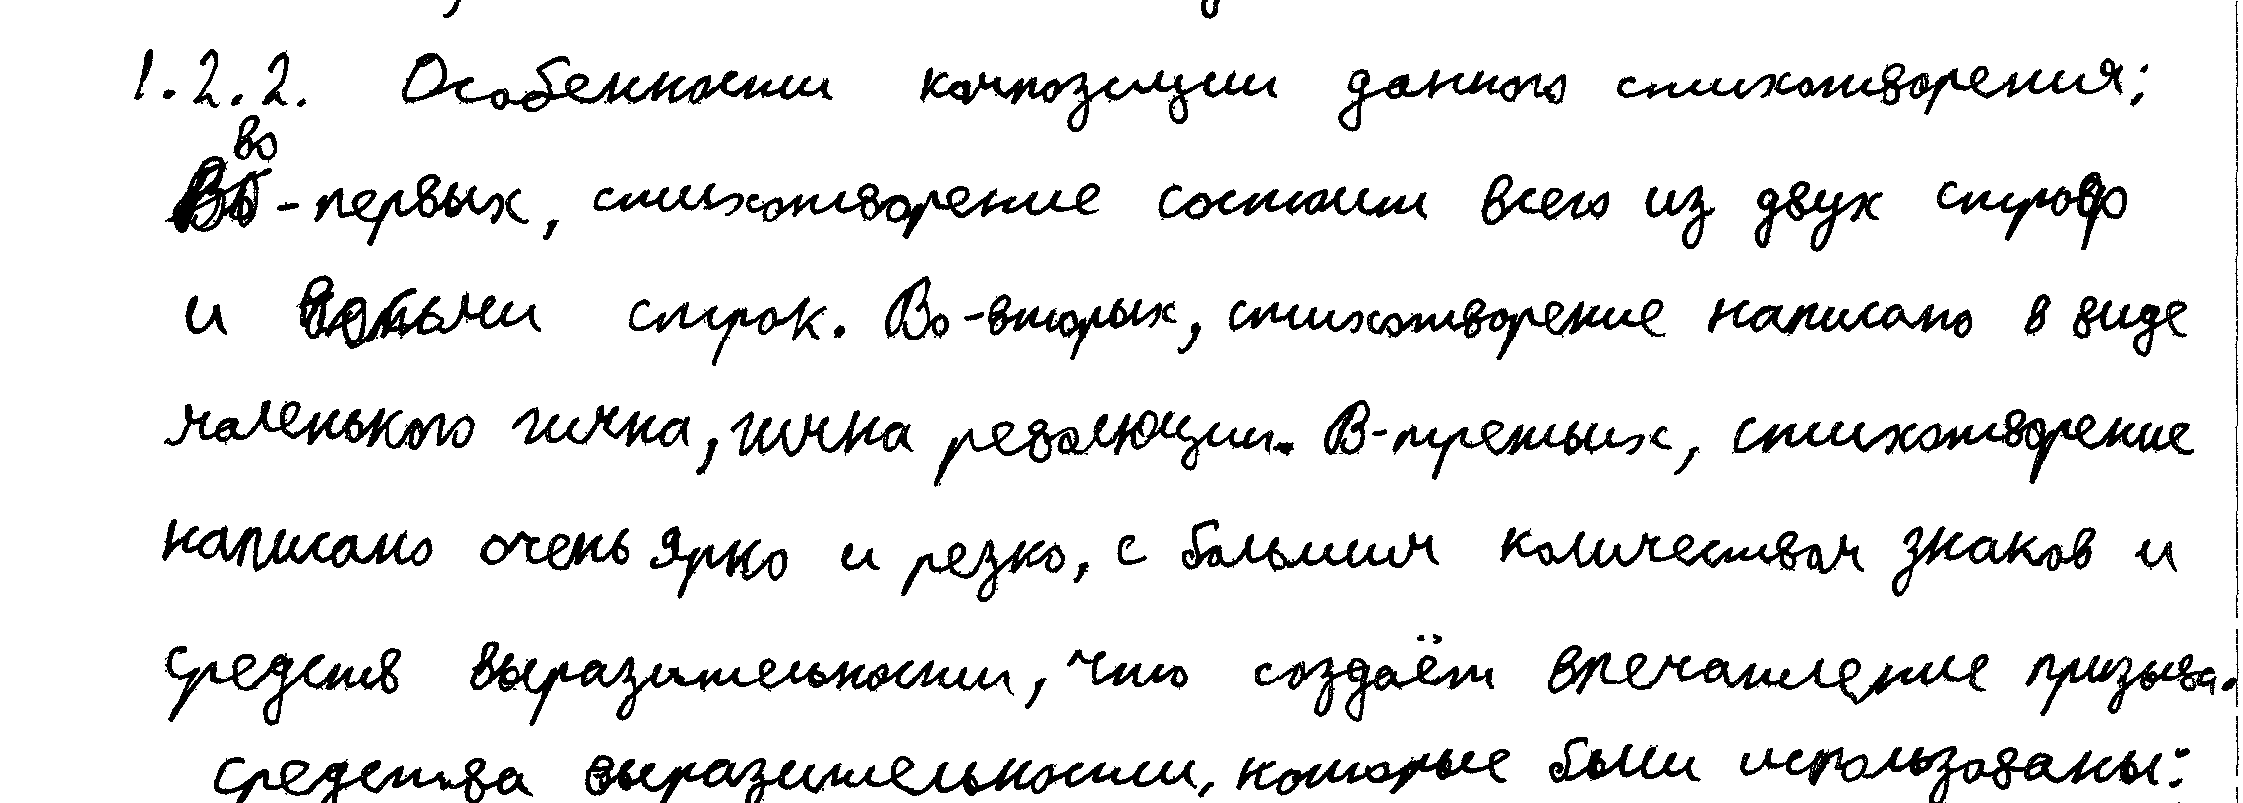 1.2.2. Особенности композиции данного стихотворения:
во-первых, стихотворение состоит всего из двух строф
и строк. Во-вторых, стихотворение написано в виде
маленького гимна, гимна революции. В-третьих, стихотворение
написано очень ярко и резко, с большим количеством знаков и
средств выразительности, что создаёт впечатление призыва.
средства выразительности, которые были использованы: